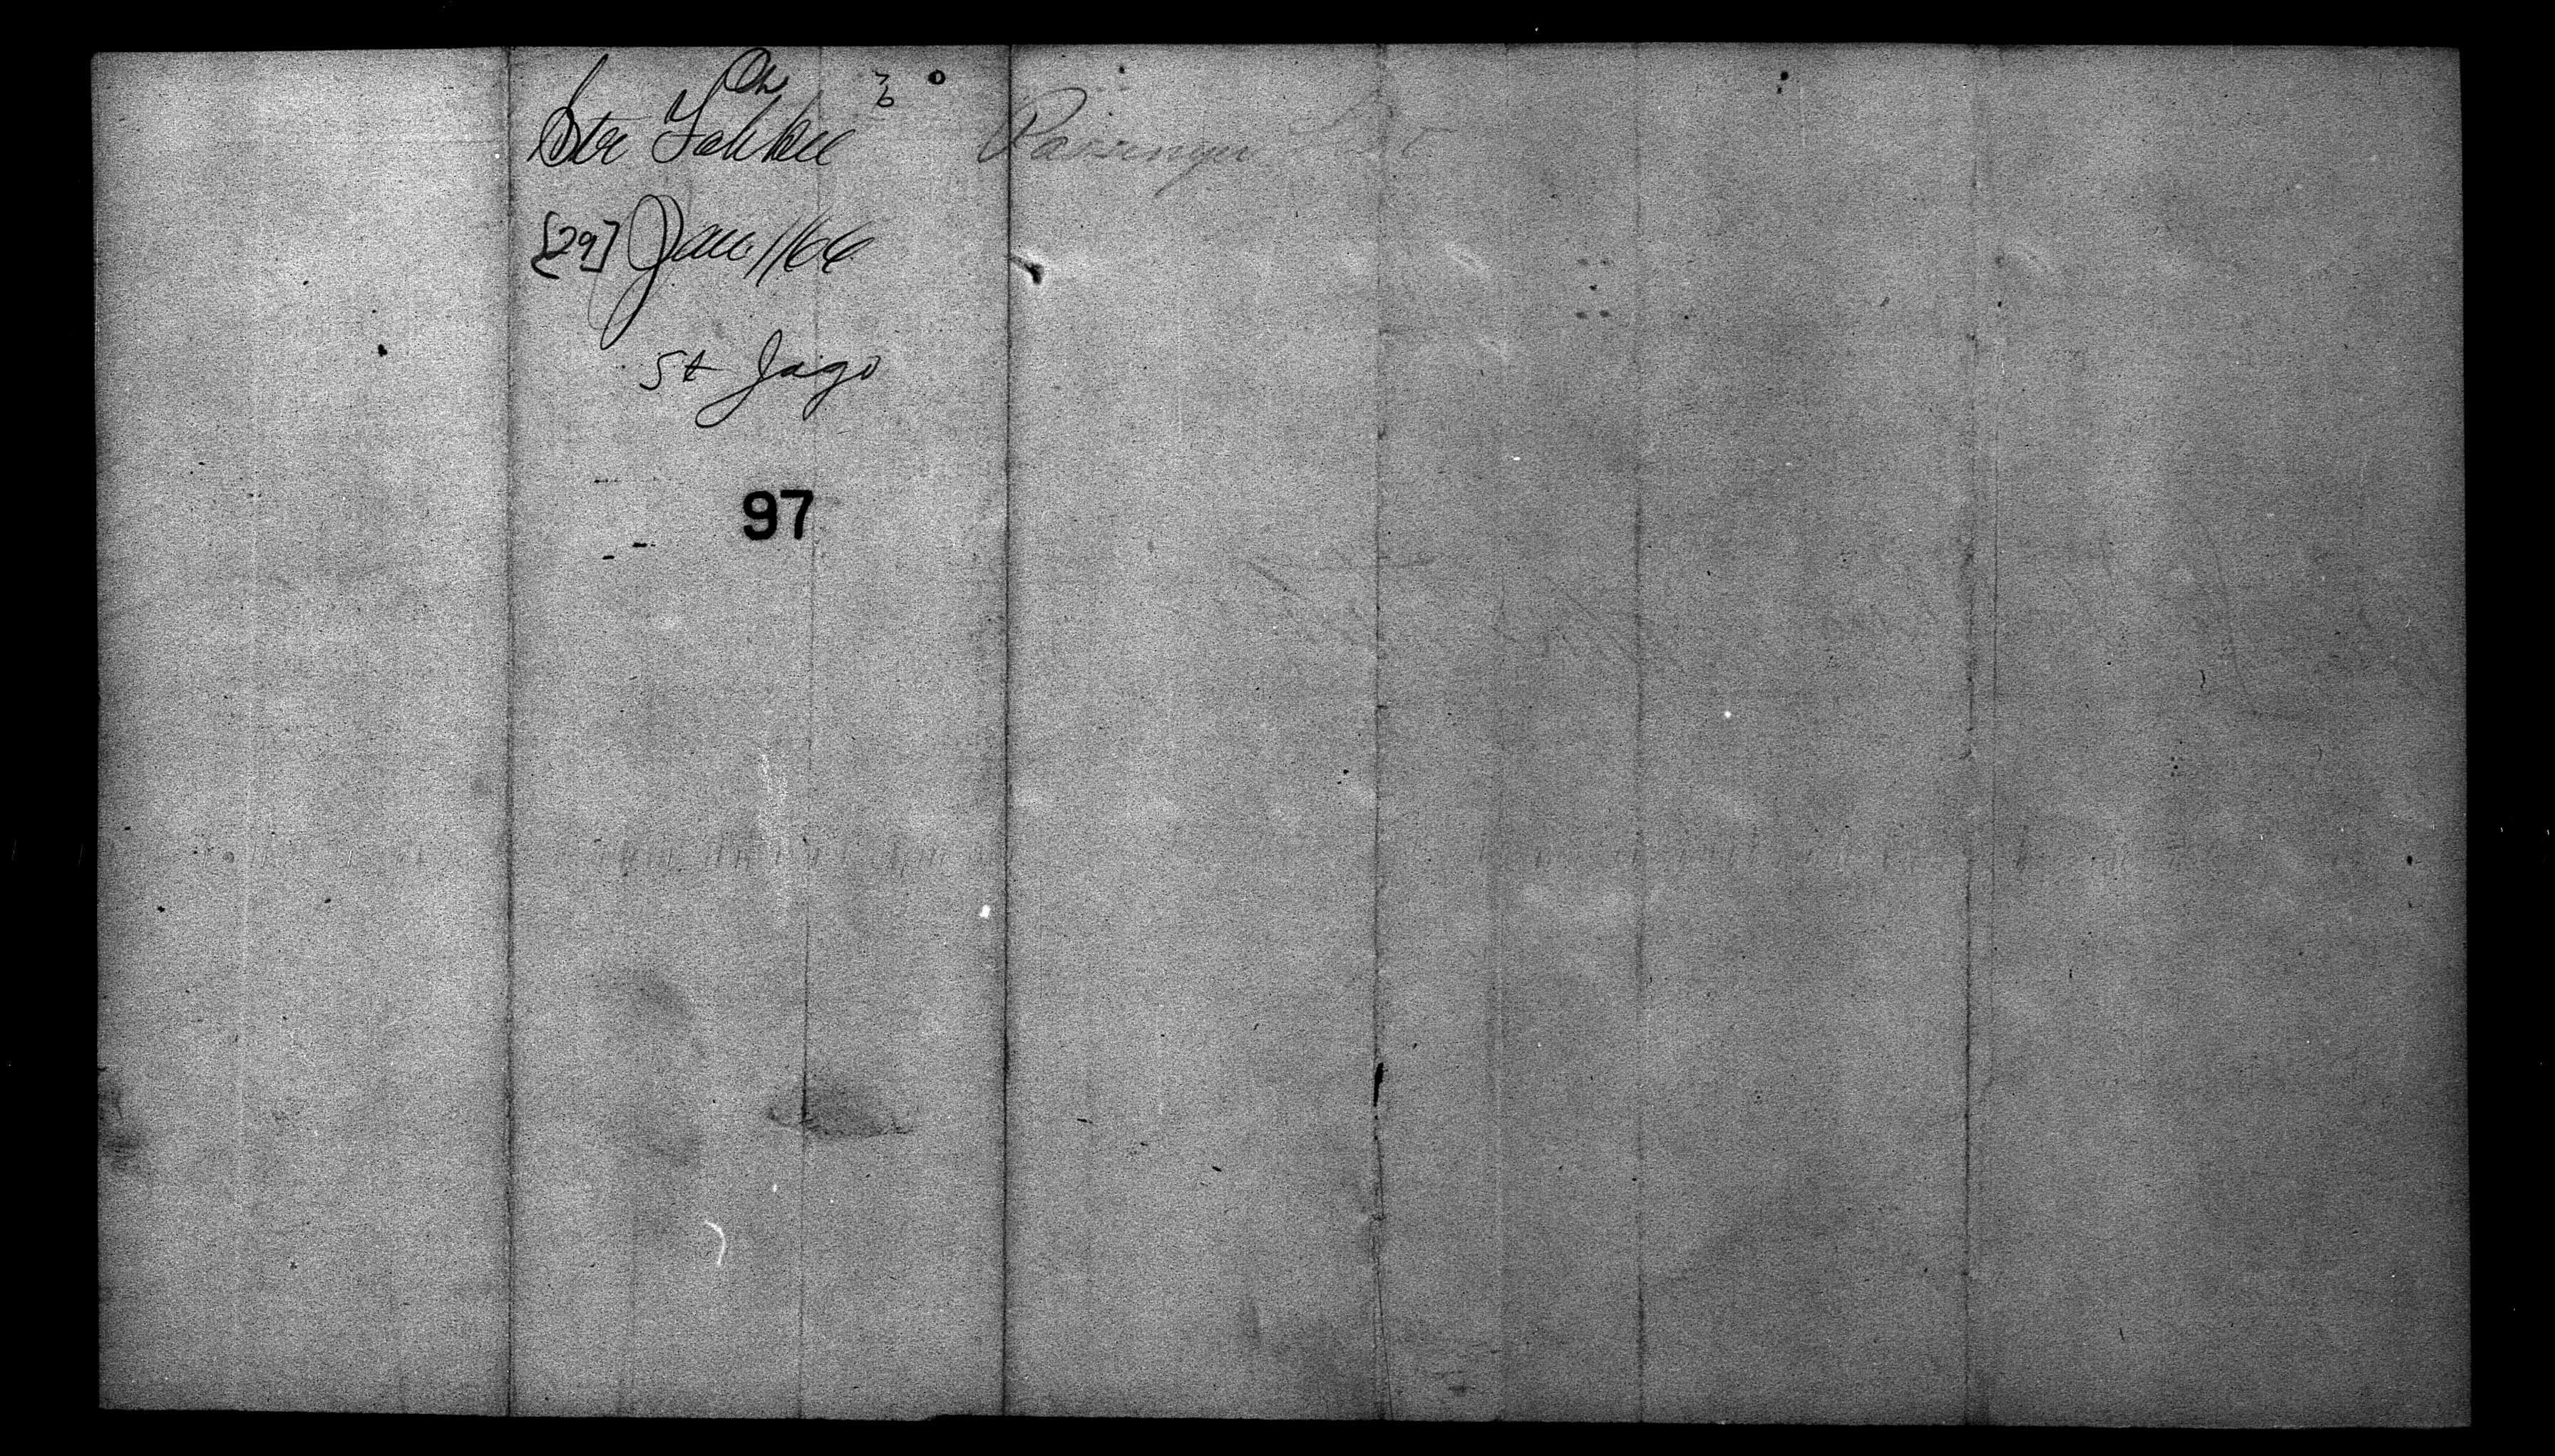 Str Tallkee
[29] Jan 1/66
St Jago
97
Passenger List